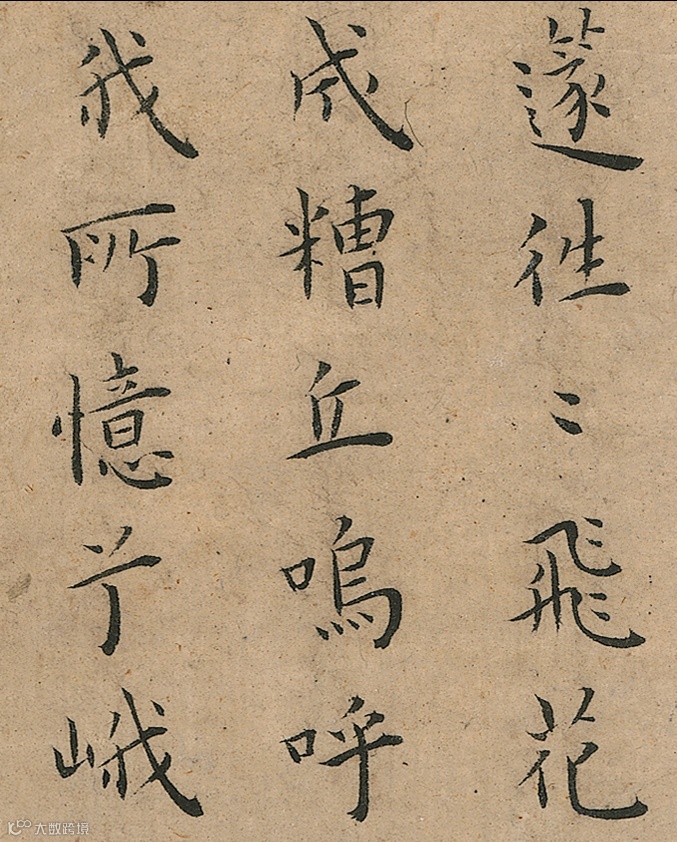 篴徃〻飛花
成糟丘嗚呼
我所憶兮峨
大数跨境